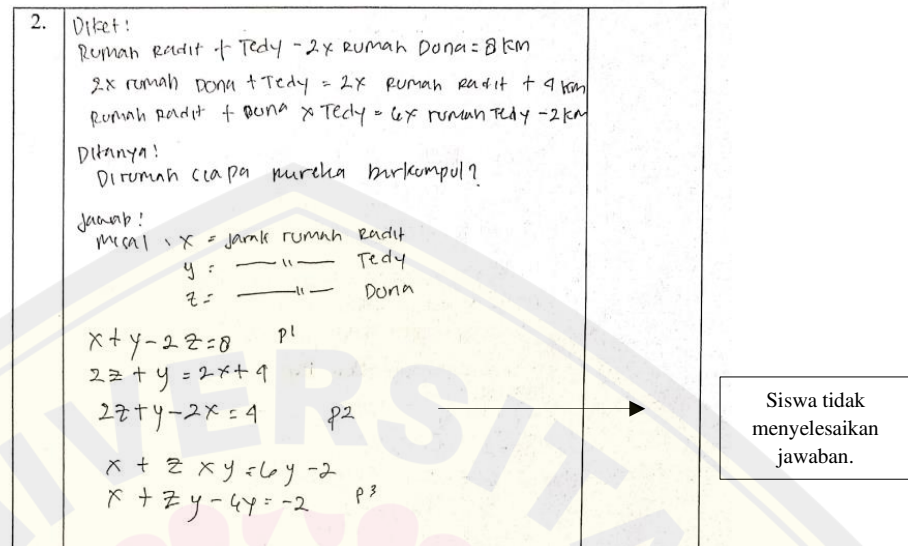 2.
Diket:
Rumah Radit + Tedy - 2x Rumah Dona = 8 km
2x rumah Dona + Tedy = 2x Rumah Radit + 4 km
Rumah Radit + Dona x Tedy = 6x rumah Tedy - 2 km
Ditanya!
Dirumah siapa mereka berkumpul?
Jawab!
misal, x = Jarak rumah Radit
y = —— " —— Tedy
z = —— " —— Dona
x + y - 2z = 8 P1
2z + y = 2x + 4
2z + y - 2x = 4 P2
x + z x y = 6y - 2
x + zy - 6y = -2 P3
Siswa tidak
menyelesaikan
jawaban.
UNIVERSITA